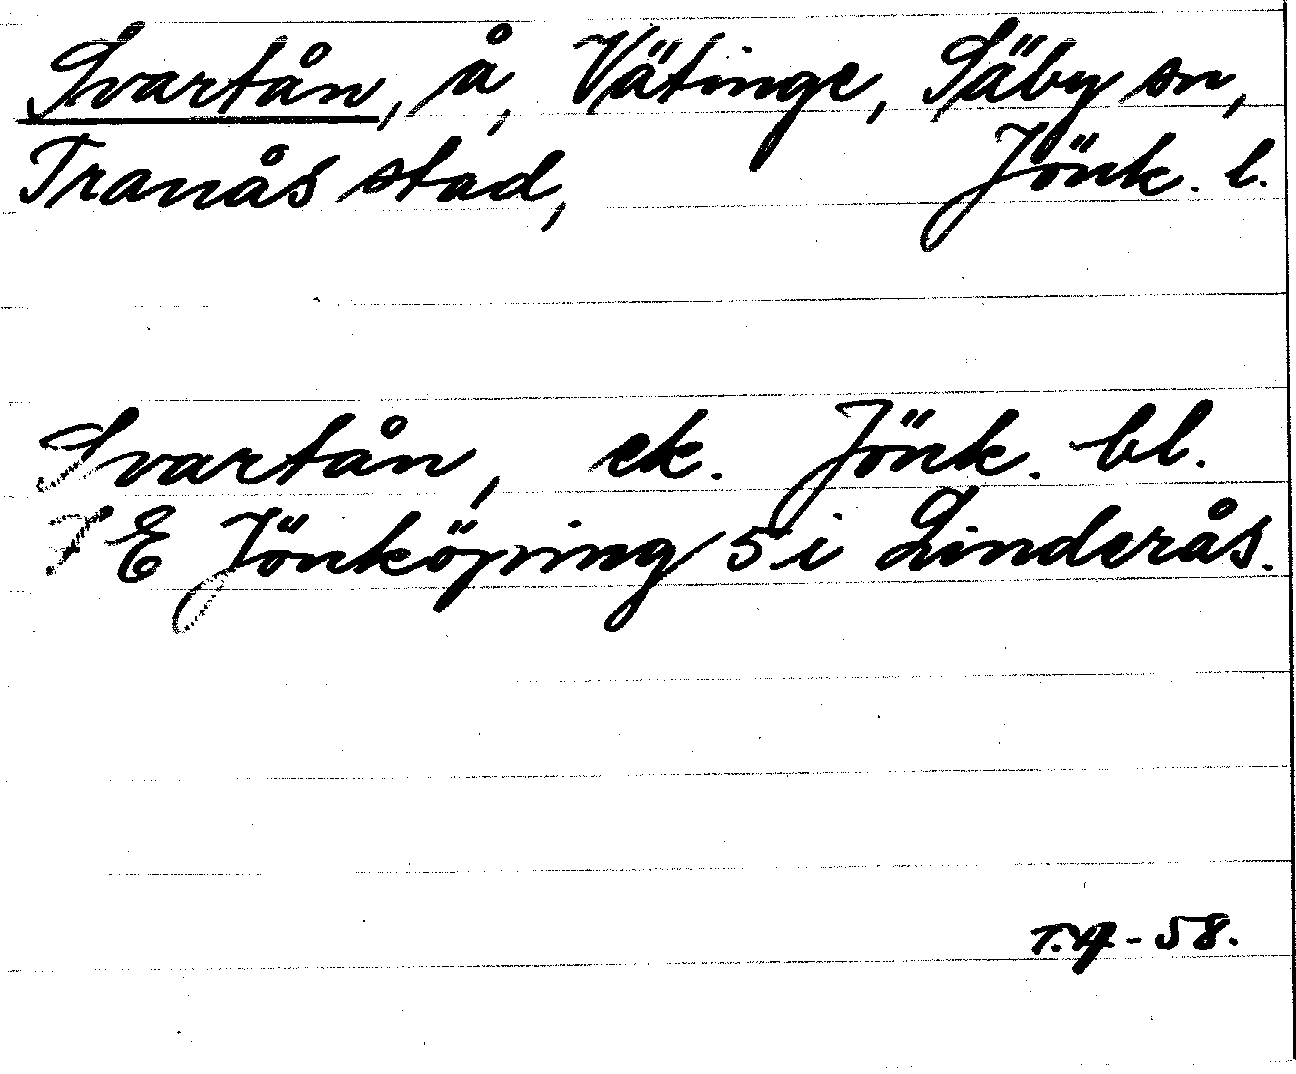 Svartån, å, Vätinge, Säby sn,
Tranås stad, Jönk. l.
Svartån, ek. Jönk. bl.
7 E Jönköping 5 i Linderås.
58.